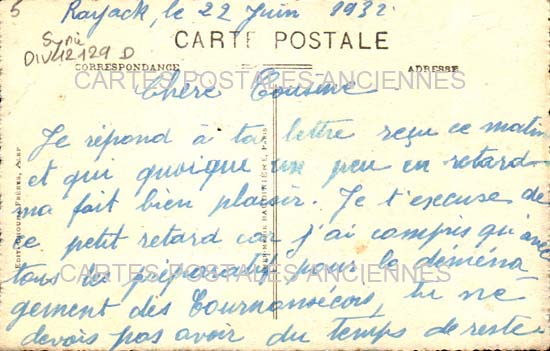 5
Rayack, le 22 Juin 1932
Syrie
DIV42129 D
CARTE POSTALE
CORRESPONDANCE
ADRESSE
CARTES POSTALES ANCIENNES
Chère Cousine
Je répond à ta lettre reçu ce matin
et qui quoique un peu en retard
ma fait bien plaisir. Je t'excuse de
ce petit retard car j'ai compris qu'avec
tous les préparatifs pour le déména
CARTES POSTALES ANCIENNES
gement des Tournannecois, tu ne
devois pas avoir du temps de reste